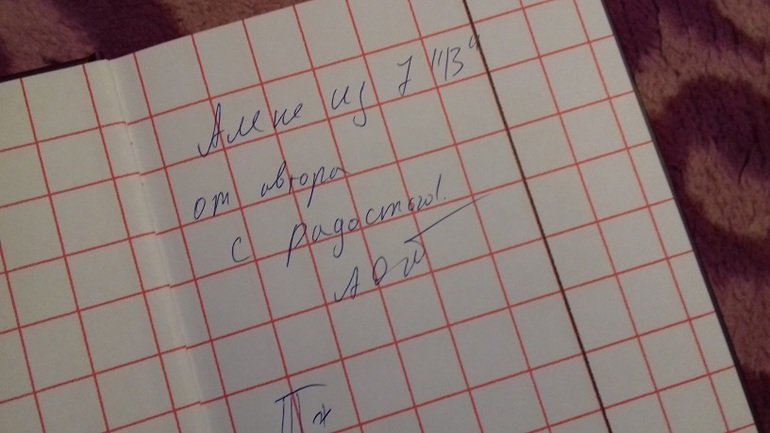 Алене из 7 "В"
от автора
с радостью!